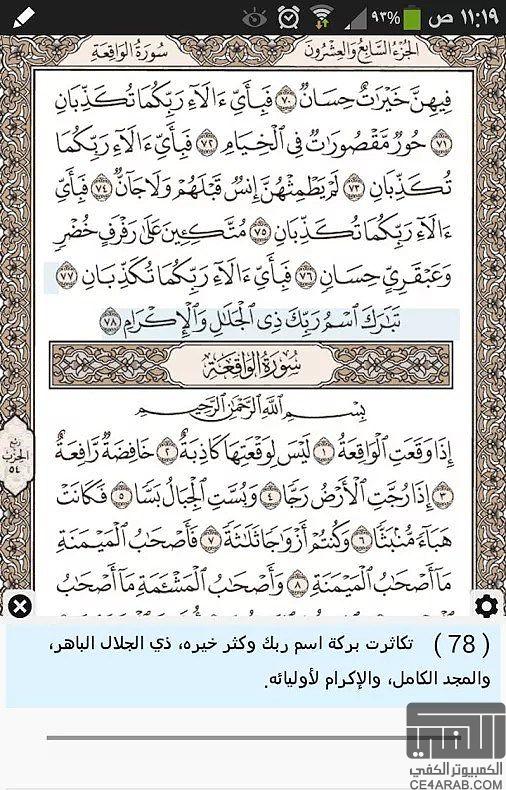 ١١:١٩ ص ٩٣%
الجزء السابع والعشرون سورة الواقعة
فِيهِنَّ خَيْرَاتٌ حِسَانٌ ٧٠ فَبِأَيِّ ءَالَآءِ رَبِّكُمَا تُكَذِّبَانِ
٧١ حُورٌ مَّقْصُورَاتٌ فِي الْخِيَامِ ٧٢ فَبِأَيِّ ءَالَآءِ رَبِّكُمَا
تُكَذِّبَانِ ٧٣ لَمْ يَطْمِثْهُنَّ إِنسٌ قَبْلَهُمْ وَلَا جَآنٌّ ٧٤ فَبِأَيِّ
ءَالَآءِ رَبِّكُمَا تُكَذِّبَانِ ٧٥ مُتَّكِئِينَ عَلَىٰ رَفْرَفٍ خُضْرٍ
وَعَبْقَرِيٍّ حِسَانٍ ٧٦ فَبِأَيِّ ءَالَآءِ رَبِّكُمَا تُكَذِّبَانِ ٧٧
تَبَارَكَ اسْمُ رَبِّكَ ذِي الْجَلَالِ وَالْإِكْرَامِ ٧٨
سُورَةُ الْوَاقِعَةِ
بِسْمِ اللَّهِ الرَّحْمَٰنِ الرَّحِيمِ
إِذَا وَقَعَتِ الْوَاقِعَةُ ١ لَيْسَ لِوَقْعَتِهَا كَاذِبَةٌ ٢ خَافِضَةٌ رَّافِعَةٌ
٣ إِذَا رُجَّتِ الْأَرْضُ رَجًّا ٤ وَبُسَّتِ الْجِبَالُ بَسًّا ٥ فَكَانَتْ
هَبَآءً مُّنۢبَثًّا ٦ وَكُنتُمْ أَزْوَاجًا ثَلَاثَةً ٧ فَأَصْحَابُ الْمَيْمَنَةِ
مَآ أَصْحَابُ الْمَيْمَنَةِ ٨ وَأَصْحَابُ الْمَشْـَٔمَةِ مَآ أَصْحَابُ
ربع
الحزب
٥٤
( 78 ) تكاثرت بركة اسم ربك وكثر خيره، ذي الجلال الباهر،
والمجد الكامل، والإكرام لأوليائه.
الكمبيوتر الكفي
CE4ARAB.COM